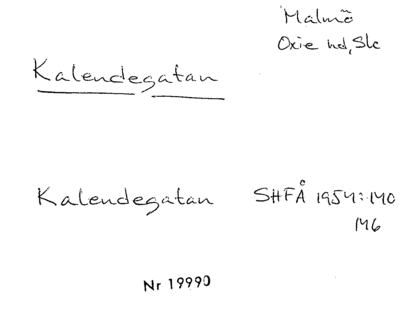 Malmö
Oxie hd, Sk
Kalendegatan
Kalendegatan SHFÅ 1954:140
146
Nr 19990